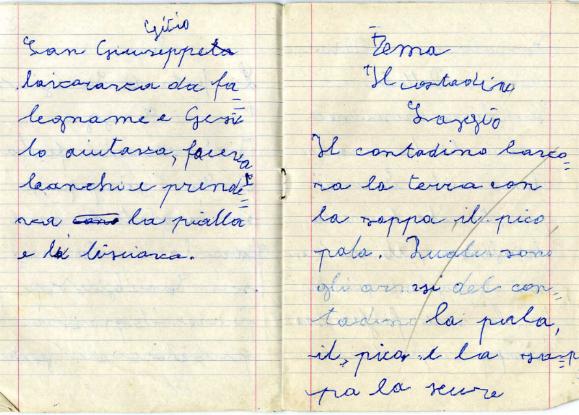 Gitio
San Giuseppeta
lavorava da fa=
legname e Gesù
lo aiutava, faceva
banchi e prende=
va la pialla
e la lisciava.
Tema
Il contadino
Svolgio
Il contadino lavo=
ra la terra con
la zappa il pico
pala. Quali sono
gli arnesi del con=
tadino la pala,
il, pico, e la zap=
pa la scure